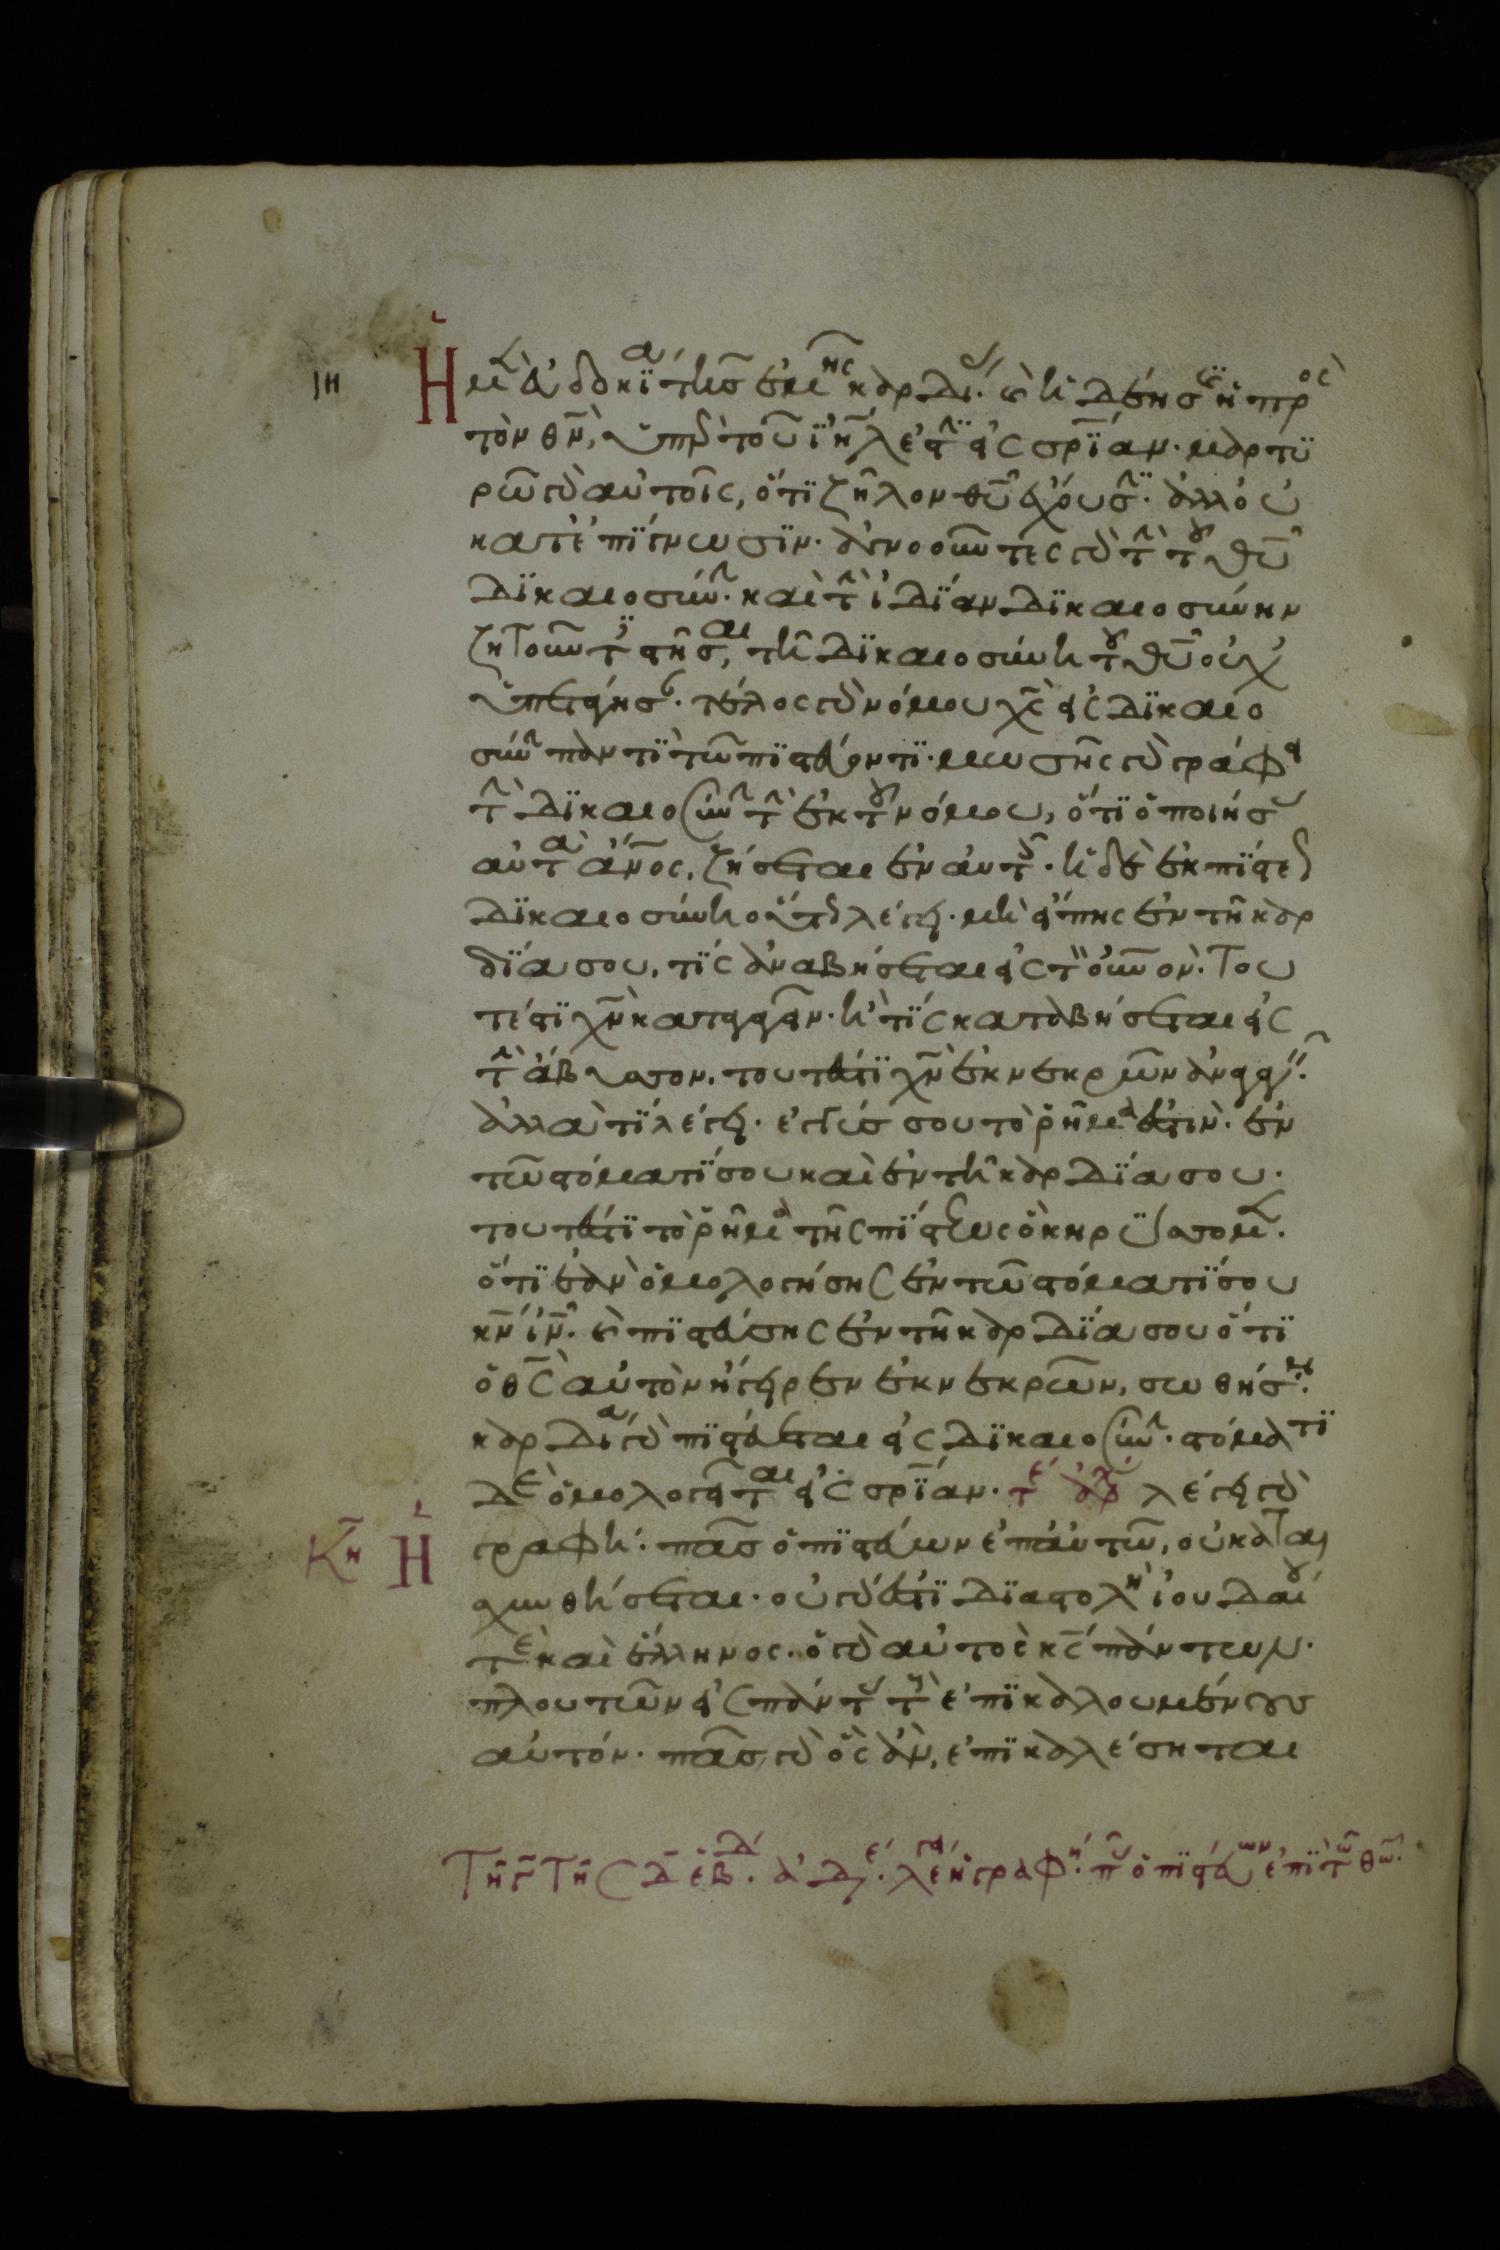 ιη Ἡ μὲν εὐδοκία τῆς ἐμῆς καρδίας· καὶ ἡ δέησις ἡ πρὸς
τὸν θν, ὑπὲρ τοῦ ιηλ ἐστὶν εἰς σρίαν· μαρτυ
ρῶ γὰρ αὐτοῖς, ὅτι ζῆλον θυ ἔχουσιν· ἀλλ οὐ
κατ ἐπίγνωσιν· ἀγνοοῦντες γὰρ τὴν τοῦ θυ
δικαιοσύνην· καὶ τὴν ἰδίαν δικαιοσύνην
ζητοῦντες στῆσαι, τῆ δικαιοσύνη τοῦ θυ οὐχ
ὑπετάγησαν· τέλος γὰρ νόμου χς εἰς δικαιο
σύνην παντὶ τῶ πιστεύοντι· μωσῆς γὰρ γράφει
τὴν δικαιοσύνην τὴν ἐκ τοῦ νόμου, ὅτι ὁ ποιήσας
αὐτὰ ἄνος, ζήσεται ἐν αὐτοῖς· ἡ δὲ ἐκ πίστεως
δικαιοσύνη οὕτως λέγει· μὴ εἴπης ἐν τῆ καρ
δία σου, τίς ἀναβήσεται εἰς τὸν οὐνον· του
τέστι χν καταγαγεῖν· ἢ τίς καταβήσεται εἰς
τὴν ἄβυσσον· τουτέστι χν ἐκ νεκρῶν ἀναγαγεῖν·
ἀλλὰ τί λέγει· ἐγγύς σου τὸ ῥῆμα ἐστιν· ἐν
τῶ στόματί σου καὶ ἐν τῆ καρδία σου·
τουτέστι τὸ ῥῆμα τῆς πίστεως ὃ κηρύσσομεν·
ὅτι ἐὰν ὁμολογήσης ἐν τῶ στόματί σου
κν ιν· καὶ πιστεύσης ἐν τῆ καρδία σου ὅτι
ὁ θς αὐτὸν ἤγειρεν ἐκ νεκρῶν, σωθήση·
καρδία γὰρ πιστεύεται εἰς δικαιοσύνην· στόματι
δὲ ὁμολογεῖται εἰς σρίαν· τέ λέγει γὰρ
κη Ἡ γραφή· πᾶς ὁ πιστεύων ἐπ αὐτῶ, οὐ καται
σχυνθήσεται· οὐ γάρ ἐστι διαστολὴ ἰουδαίου
τε καὶ ἕλληνος· ὁ γὰρ αὐτὸς κς πάντων·
πλουτῶν εἰς πάντας τοὺς ἐπικαλουμένους
αὐτόν· πᾶς γὰρ ὃς ἂν, ἐπικαλέσηται
Τῆ γ Τῆς δ ἑβδ· ἀδε· λέγει ἡ γραφή· πᾶς ὁ πιστεύων ἐπὶ τῶ θω·